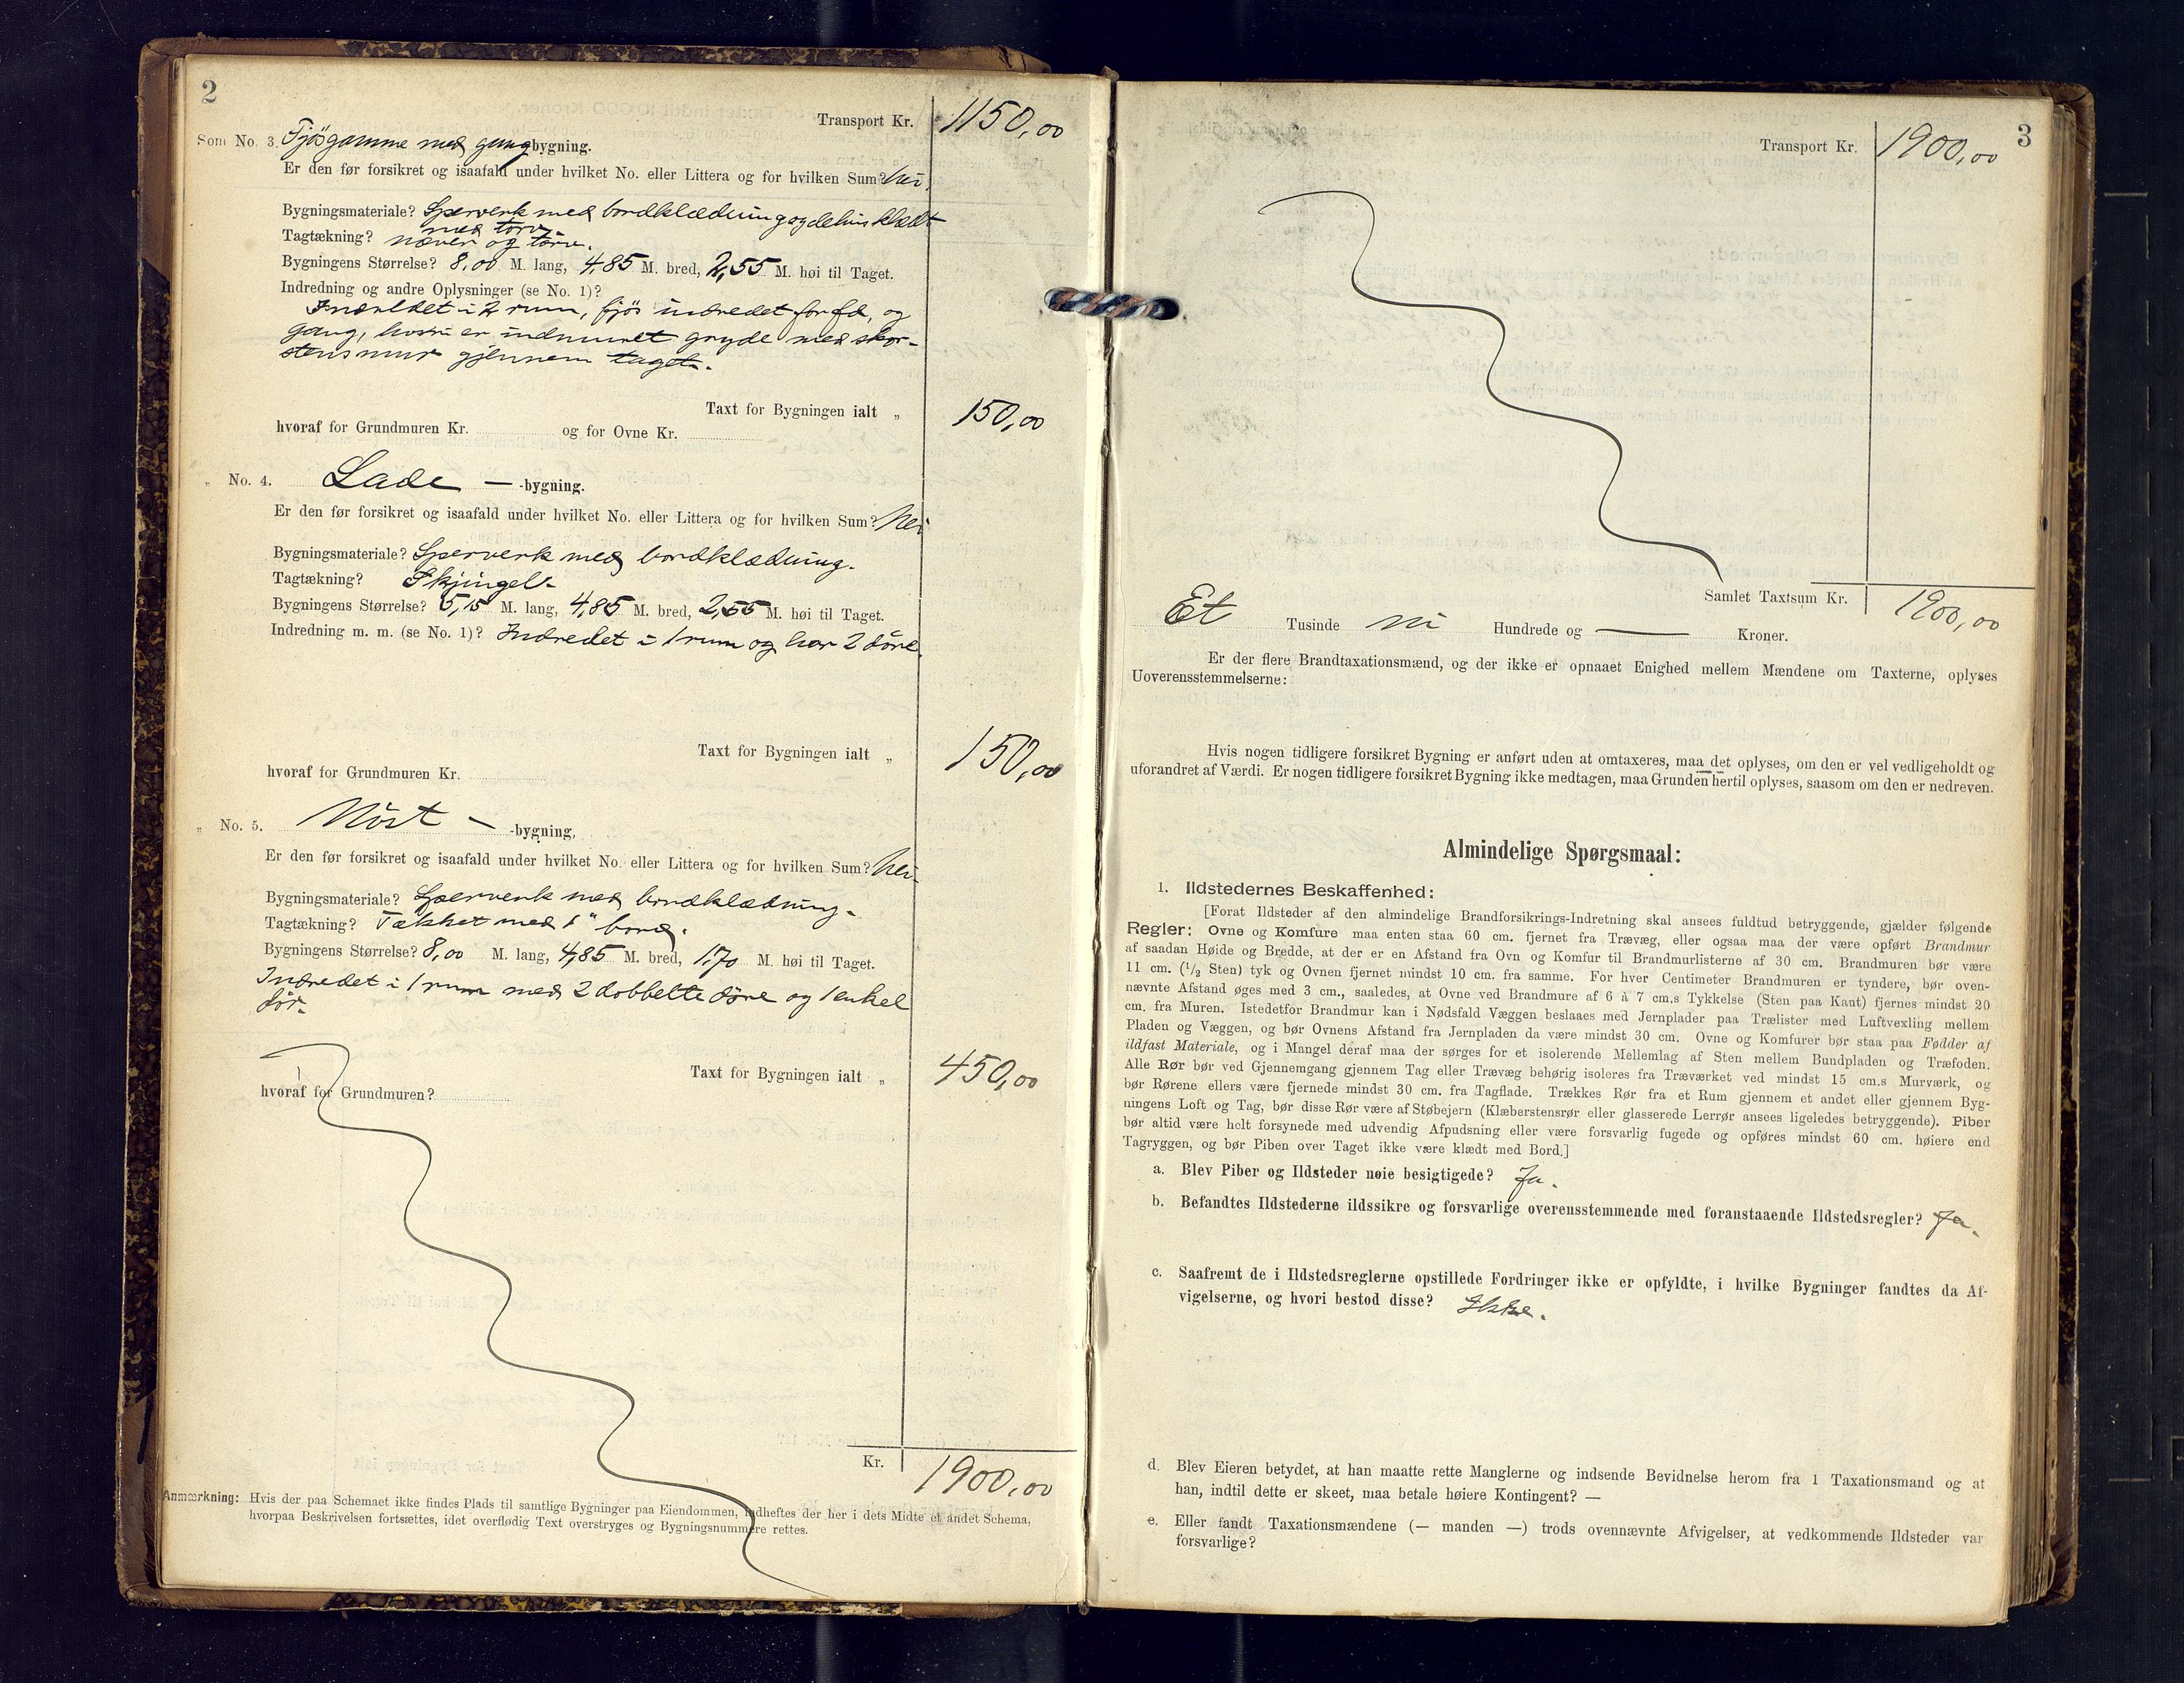 2
Transport Kr. 1150,00
Som No. 3. Fjøsgamme med gangbygning.
Er den før forsikret og isaafald under hvilket No. eller Littera og for hvilken Sum? Nei.
Bygningsmateriale? Sperverk med bordklædning og delvis klædt
med torv.
Tagtækning? næver og torv.
Bygningens Størrelse? 8,00 M. lang, 4,85 M. bred, 2,55 M. høi til Taget.
Indredning og andre Oplysninger (se No. 1)?
Indredet i 2 rum, fjøs indredet for fæ, og
gang, hvori er indmuret gryde med skor-
stensmur gjennem taget.
Taxt for Bygningen ialt „ 150,00
hvoraf for Grundmuren Kr. og for Ovne Kr.
„ No. 4. Lade — -bygning.
Er den før forsikret og isaafald under hvilket No. eller Littera og for hvilken Sum? Nei
Bygningsmateriale? Sperverk med bordklædning.
Tagtækning? Skjingel.
Bygningens Størrelse? 5,15 M. lang, 4,85 M. bred, 2,55 M. høi til Taget.
Indredning m. m. (se No. 1)? Indredet i 1 rum og har 2 døre.
Taxt for Bygningen ialt „ 150,00
hvoraf for Grundmuren Kr.
„ No. 5. Nøst — -bygning.
Er den før forsikret og isaafald under hvilket No. eller Littera og for hvilken Sum? Nei.
Bygningsmateriale? Sperverk med bordklædning.
Tagtækning? Tækket med 1" bord.
Bygningens Størrelse? 8,00 M. lang, 4,85 M. bred, 1.70 M. høi til Taget.
Indredet i 1 rum med 2 dobbelte døre og 1 enkel
dør.
Taxt for Bygningen ialt „ 450,00
hvoraf for Grundmuren?
Kr. 1900,00
Anmærkning: Hvis der paa Schemaet ikke findes Plads til samtlige Bygninger paa Eiendommen, indheftes der her i dets Midte et andet Schema,
hvorpaa Beskrivelsen fortsættes, idet overflødig Text overstryges og Bygningsnummere rettes.
3
Transport Kr. 1900,00
Samlet Taxtsum Kr. 1900,00
Et Tusinde ni Hundrede og — Kroner.
Er der flere Brandtaxationsmænd, og der ikke er opnaaet Enighed mellem Mændene om Taxterne, oplyses
Uoverensstemmelserne:
Hvis nogen tidligere forsikret Bygning er anført uden at omtaxeres, maa det oplyses, om den er vel vedligeholdt og
uforandret af Værdi. Er nogen tidligere forsikret Bygning ikke medtagen, maa Grunden hertil oplyses, saasom om den er nedreven.
Almindelige Spørgsmaal:
1. Ildstedernes Beskaffenhed:
[Forat Ildsteder af den almindelige Brandforsikrings-Indretning skal ansees fuldtud betryggende, gjælder følgende
Regler: Ovne og Komfure maa enten staa 60 cm. fjernet fra Trævæg, eller ogsaa maa der være opført Brandmur
af saadan Høide og Bredde, at der er en Afstand fra Ovn og Komfur til Brandmurlisterne af 30 cm. Brandmuren bør være
11 cm. (1/2 Sten) tyk og Ovnen fjernet mindst 10 cm. fra samme. For hver Centimeter Brandmuren er tyndere, bør oven-
nævnte Afstand øges med 3 cm., saaledes, at Ovne ved Brandmure af 6 à 7 cm.s Tykkelse (Sten paa Kant) fjernes mindst 20
cm. fra Muren. Istedetfor Brandmur kan i Nødsfald Væggen beslaaes med Jernplader paa Trælister med Luftvexling mellem
Pladen og Væggen, og bør Ovnens Afstand fra Jernpladen da være mindst 30 cm. Ovne og Komfurer bør staa paa Fødder af
ildfast Materiale, og i Mangel deraf maa der sørges for et isolerende Mellemlag af Sten mellem Bundpladen og Træfoden.
Alle Rør bør ved Gjennemgang gjennem Tag eller Trævæg behørig isoleres fra Træværket ved mindst 15 cm.s Murværk, og
bør Rørene ellers være fjernede mindst 30 cm. fra Tagflade. Trækkes Rør fra et Rum gjennem et andet eller gjennem Byg-
ningens Loft og Tag, bør disse Rør være af Støbejern (Klæberstensrør eller glasserede Lerrør ansees ligeledes betryggende). Piber
bør altid være helt forsynede med udvendig Afpudsning eller være forsvarlig fugede og opføres mindst 60 cm. høiere end
Tagryggen, og bør Piben over Taget ikke være klædt med Bord.]
a. Blev Piber og Ildsteder nøie besigtigede? Ja.
b. Befandtes Ildstederne ildssikre og forsvarlige overensstemmende med foranstaaende Ildstedsregler? Ja.
c. Saafremt de i Ildstedsreglerne opstillede Fordringer ikke er opfyldte, i hvilke Bygninger fandtes da Af-
vigelserne, og hvori bestod disse? Ikke.
d. Blev Eieren betydet, at han maatte rette Manglerne og indsende Bevidnelse herom fra 1 Taxationsmand og at
han, indtil dette er skeet, maa betale høiere Kontingent? —
e. Eller fandt Taxationsmændene (— manden —) trods ovennævnte Afvigelser, at vedkommende Ildsteder var
forsvarlige?